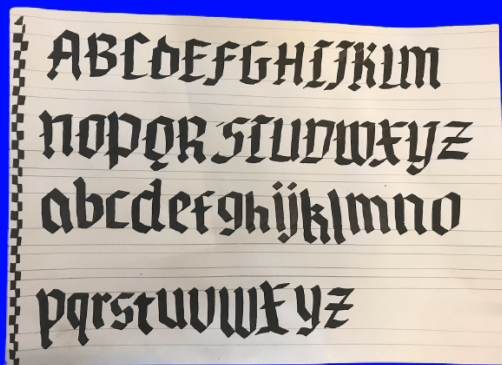 ABCDEFGHIJKLM
NOPQRSTUVWXYZ
abcdefghijklmno
pqrstuvwxyz